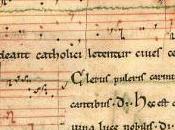 deant catholici letentur ciues ce
Clerus pulcris carmi
cantibus. d͞r. Hec est d
uina luce nobilis. d͞r.